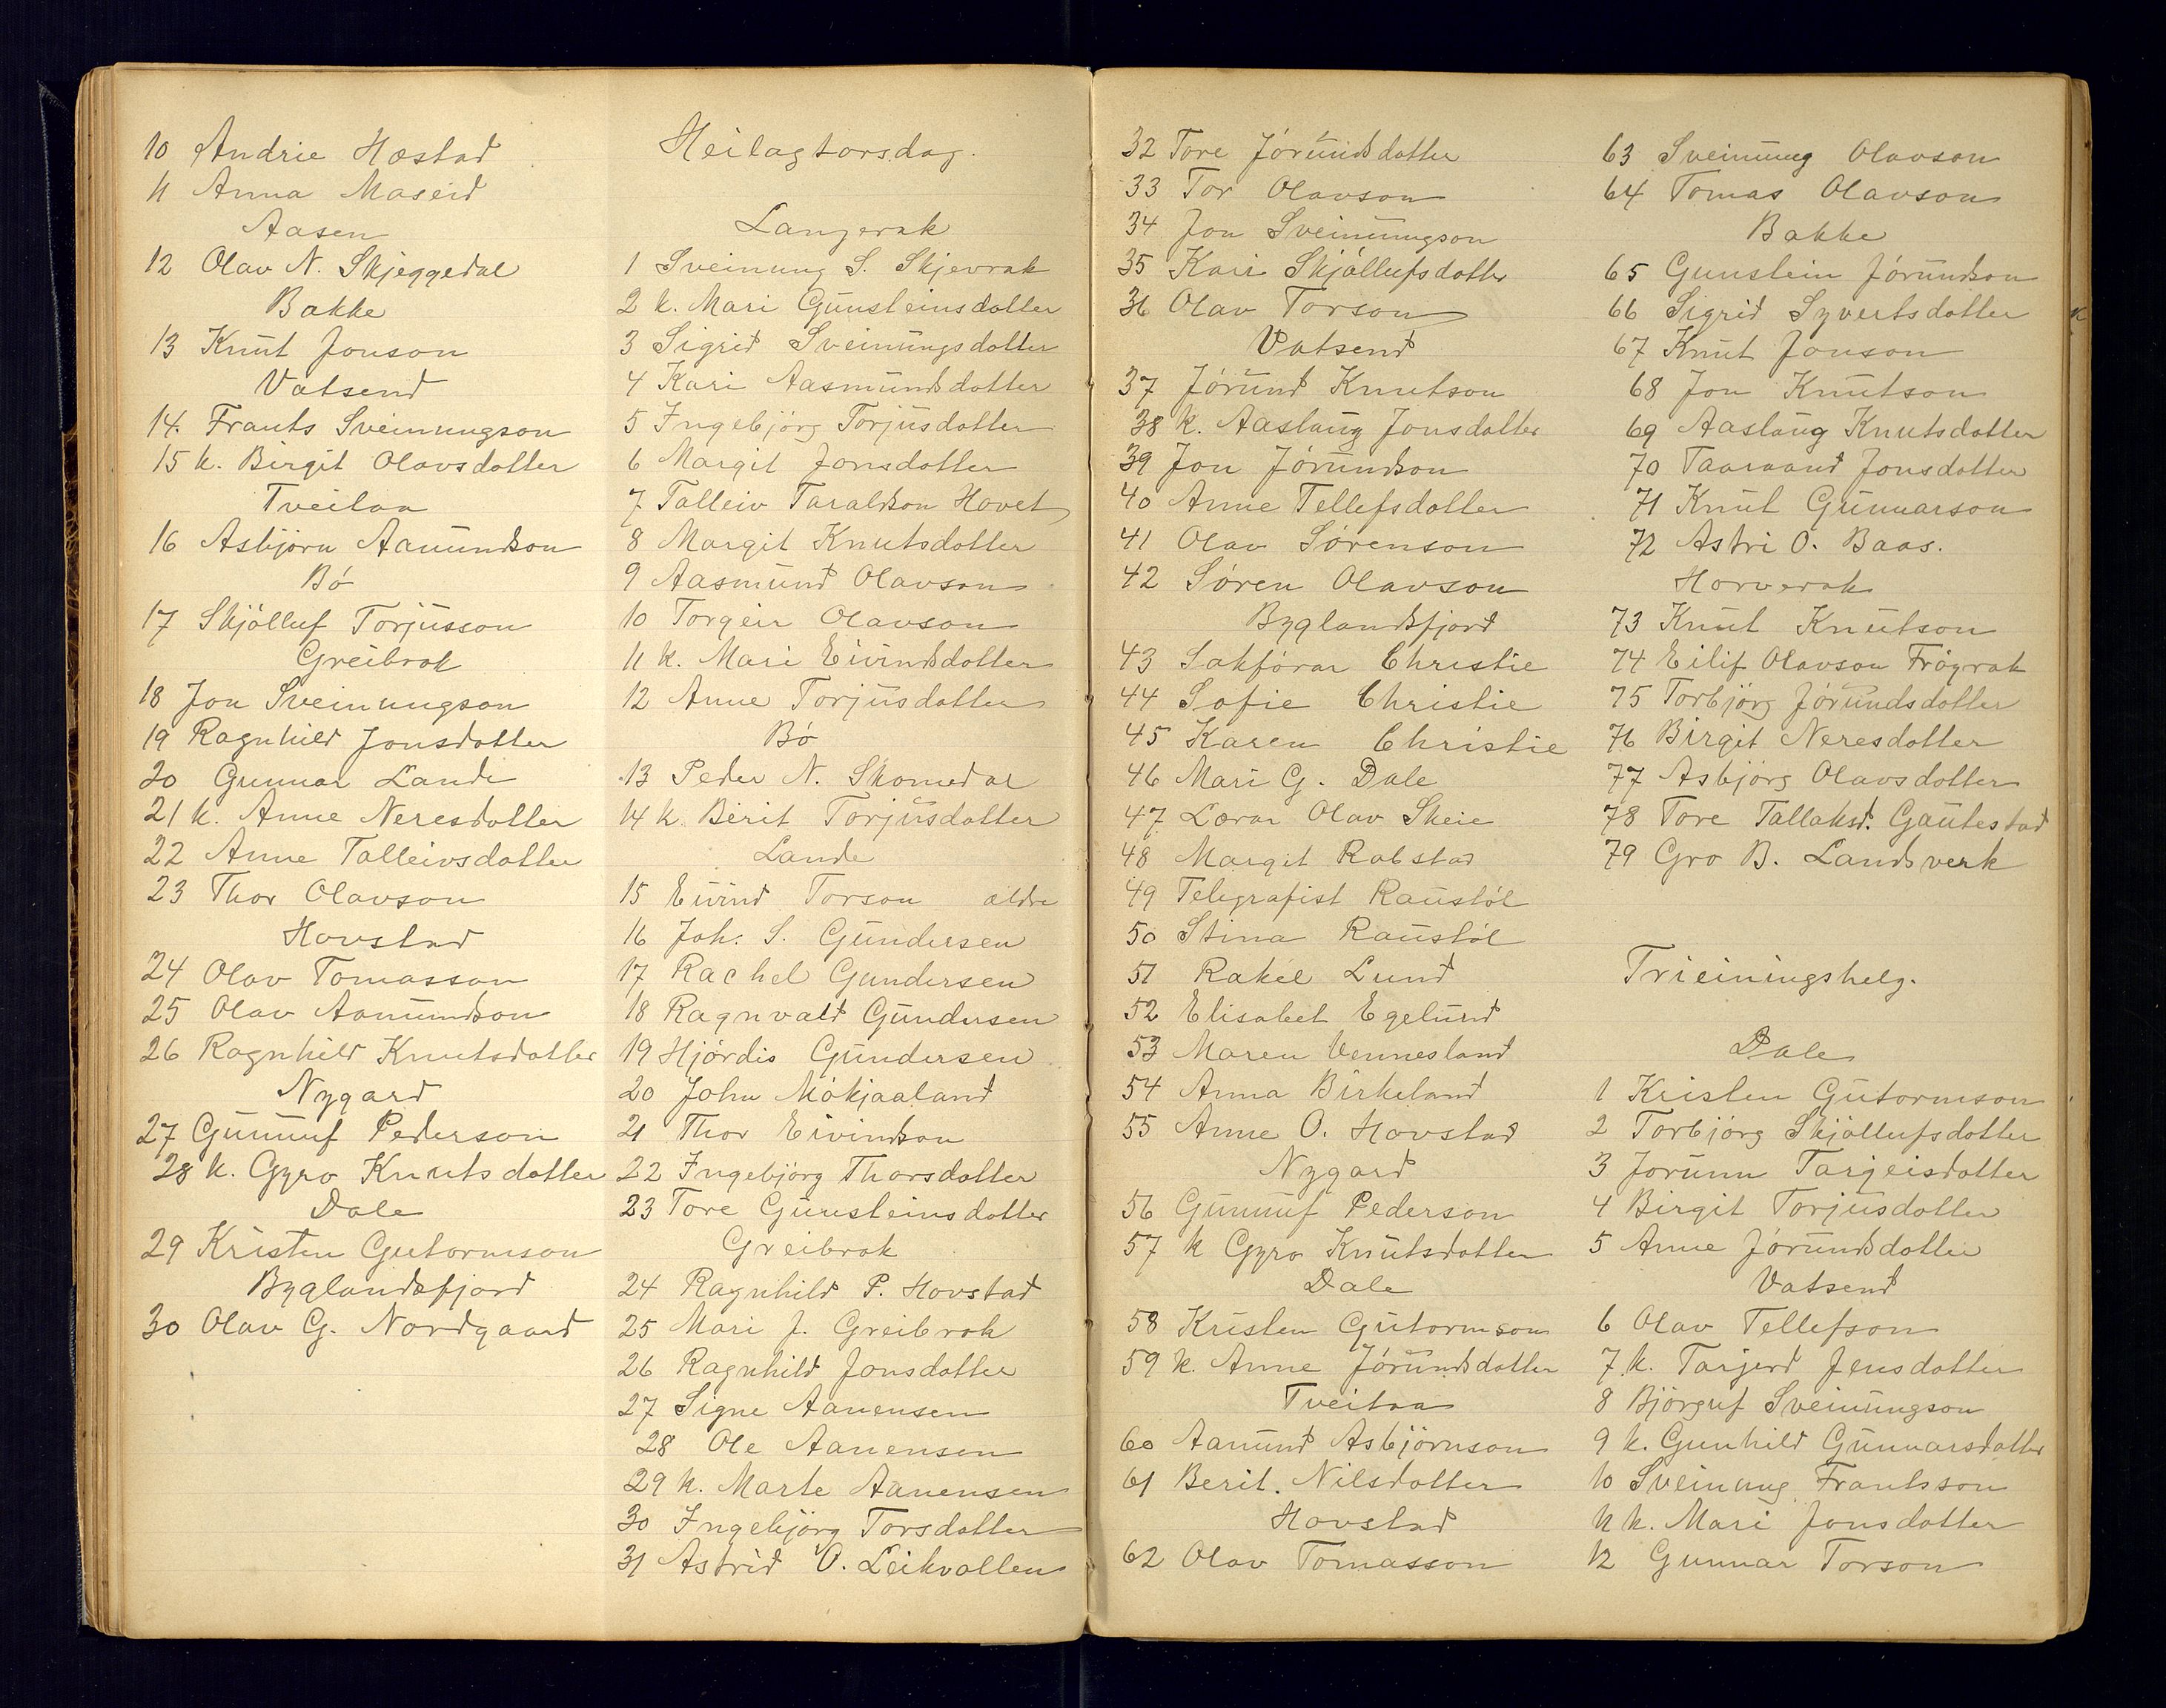 10 Andrie Hæstad
11 Anna Maseid
Aasen
12 Olav N. Skjeggedal
Bakke
13 Knut Jonson
Vatsend
14. Frants Sveinungson
15 k. Birgit Olavsdotter
Tveitaa
16 Asbjörn Aamundson
Bö
17 Skjölluf Torjusson
Greibrok
18 Jon Sveinungson
19 Ragnhild Jonsdotter
20 Gunnar Lande
21 k. Anne Neresdotter
22 Anne Talleivsdotter
23 Thor Olavson
Hovstad
24 Olav Tomasson
25 Olav Aamundson
26 Ragnhild Knutsdotter
Nygard
27 Gunnuf Pederson
28 k. Gyro Knutsdotter
Dale
29 Kristen Gutormson
Byglandsfjord
30 Olav G. Nordgaard
Heilagtorsdag.
Langerak
1 Sveinung S. Skjevrak
2 k. Mari Gunsteinsdotter
3 Sigrid Sveinungsdotter
4 Kari Aasmundsdotter
5 Ingebjörg Torjusdotter
6 Margit Jonsdotter
7 Talleiv Taraldson Hovet
8 Margit Knutsdotter
9 Aasmund Olavson
10 Torgeir Olavson
11 k. Mari Eivindsdotter
12 Anne Torjusdotter
Bö
13 Peder N. Skomedal
14 k. Birit Torjusdotter
Lande
15 Eivind Torson eldre
16 Joh. S. Gundersen
17 Rachel Gundersen
18 Ragnvald Gundersen
19 Hjördis Gundersen
20 John Mökjaaland
21 Thor Eivindson
22 Ingebjörg Thorsdotter
23 Tore Gunsteinsdotter
Greibrok
24 Ragnhild P. Hovstad
25 Mari J. Greibrok
26 Ragnhild Jonsdotter
27 Signe Aanensen
28 Ole Aanensen
29 k. Marte Aanensen
30 Ingebjörg Torsdotter
31 Astrid O. Leikvollen
32 Tore Jörundsdotter
33 Tor Olavson
34 Jon Sveinungson
35 Kari Skjöllufsdotter
36 Olav Torson
Vatsend
37 Jörund Knutson
38 k. Aaslaug Jonsdotter
39 Jon Jörundson
40 Anne Tellefsdotter
41 Olav Sörenson
42 Sören Olavson
Byglandsfjord
43 Sakförar Christie
44 Sofie Christie
45 Karen Christie
46 Mari G. Dale
47 Lærar Olav Skeie
48 Margit Rabstad
49 Telegrafist Raustöl
50 Stina Raustöl
51 Rakel Lund
52 Elisabet Egelund
53 Maren Vennesland
54 Anna Birkeland
55 Anne O. Hovstad
Nygard
56 Gunnuf Pederson
57 k Gyro Knutsdotter
Dale
58 Kristen Gutormson
59 k. Anne Jörundsdotter
Tveitaa
60 Aamund Asbjörnson
61 Berit. Nilsdotter
Hovstad
62 Olav Tomasson
63 Sveinung Olavson
64 Tomas Olavson
Bakke
65 Gunstein Jörundson
66 Sigrid Syvertsdotter
67 Knut Jonson
68 Jon Knutson
69 Aaslaug Knutsdotter
70 Taaraand Jonsdotter
71 Knut Gunnarson
72 Astri O. Baas.
Horverak
73 Knut Knutson
74 Eilif Olavson Fröyrak
75 Torbjörg Jörundsdotter
76 Birgit Neresdotter
77 Asbjörg Olavsdotter
78 Tore Tallaksd. Gautestad
79 Gro B. Landsverk
Trieiningshelg.
Dale
1 Kristen Gutormson
2 Torbjörg Skjöllufsdotter
3 Jorunn Targeisdotter
4 Birgit Torjusdotter
5 Anne Jörundsdotter
Vatsend
6 Olav Tellefson
7 k. Targerd Jensdotter
8 Björguf Sveinungson
9 k. Gunhild Gunnarsdotter
10 Sveinung Frantsson
11 k. Mari Jonsdotter
12 Gunnar Torson